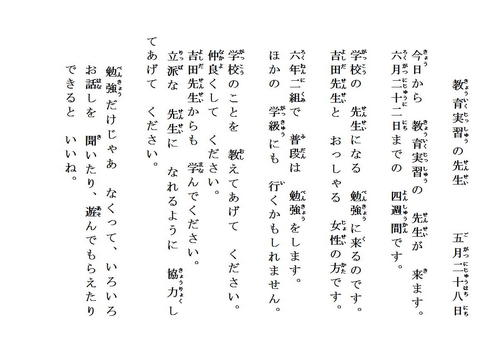 教育実習の先生　五月二十八日
今日から　教育実習の　先生が　来ます。
六月二十二日までの　四週間です。
学校の　先生になる　勉強に来るのです。
吉田先生と　おっしゃる　女性の方です。
六年二組で　普段は　勉強をします。
ほかの　学級にも　行くかもしれません。
学校のことを　教えてあげて　ください。
仲良くして　ください。
吉田先生からも　学んでください。
立派な　先生に　なれるように　協力し
てあげて　ください。
勉強だけじゃあ　なくって、いろいろ
お話しを　聞いたり、遊んでもらえたり
できると　いいね。